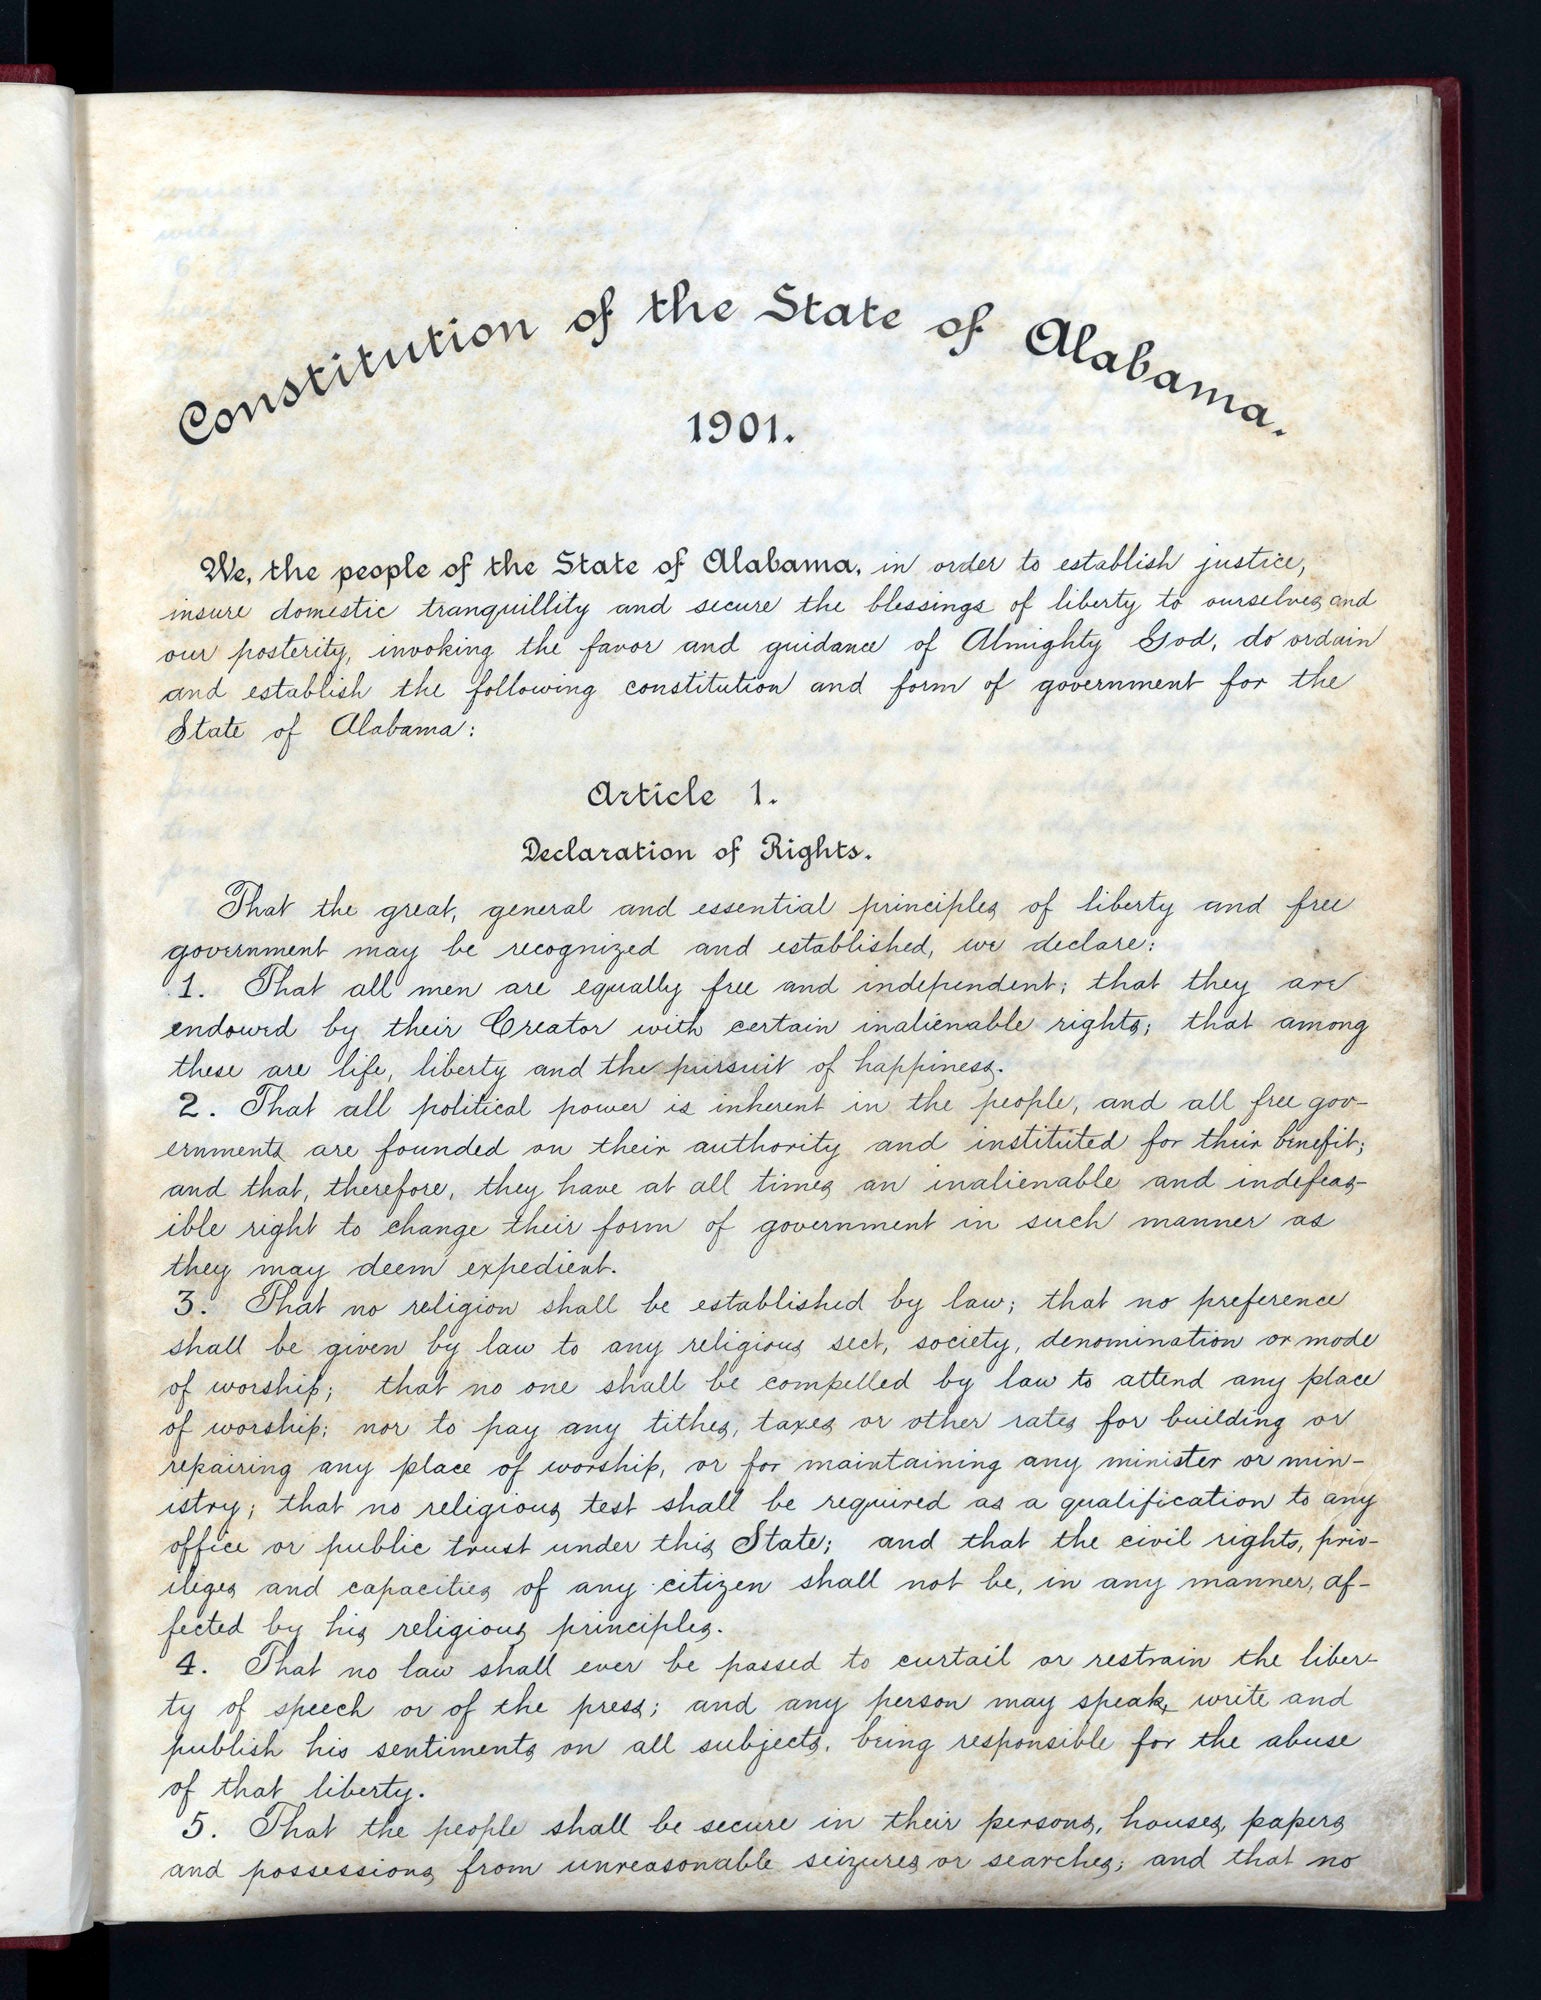 Constitution of the State of Alabama.
1901.
We, the people of the State of Alabama, in order to establish justice,
insure domestic tranquillity and secure the blessings of liberty to ourselves and
our posterity, invoking the favor and guidance of Almighty God, do ordain
and establish the following constitution and form of government for the
State of Alabama:
Article 1.
Declaration of Rights.
That the great, general and essential principles of liberty and free
government may be recognized and established, we declare:
1. That all men are equally free and independent; that they are
endowed by their Creator with certain inalienable rights; that among
these are life, liberty and the pursuit of happiness.
2. That all political power is inherent in the people, and all free gov-
ernments are founded on their authority and instituted for their benefit;
and that, therefore, they have at all times an inalienable and indefeas-
ible right to change their form of government in such manner as
they may deem expedient.
3. That no religion shall be established by law; that no preference
shall be given by law to any religious sect, society, denomination or mode
of worship; that no one shall be compelled by law to attend any place
of worship; nor to pay any tithes, taxes or other rates for building or
repairing any place of worship, or for maintaining any minister or min-
istry; that no religious test shall be required as a qualification to any
office or public trust under this State; and that the civil rights, priv-
ileges and capacities of any citizen shall not be, in any manner, af-
fected by his religious principles.
4. That no law shall ever be passed to curtail or restrain the liber-
ty of speech or of the press; and any person may speak, write and
publish his sentiments on all subjects, being responsible for the abuse
of that liberty.
5. That the people shall be secure in their persons, houses, papers
and possessions from unreasonable seizures or searches; and that no